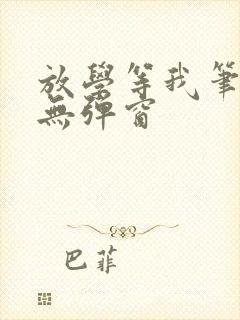 放學等我筆
無彈窗
巴菲